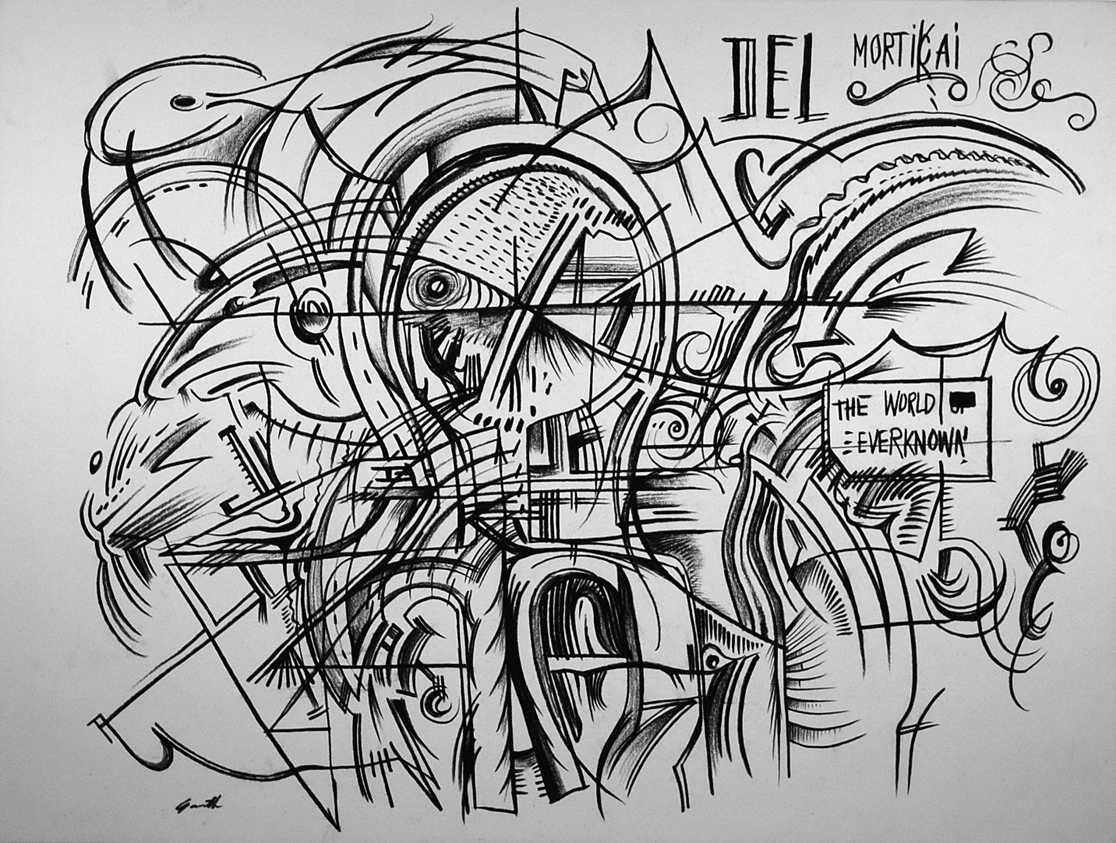 DEI MORTIKAI
THE WORLD OF
EVERKNOWN
Garth